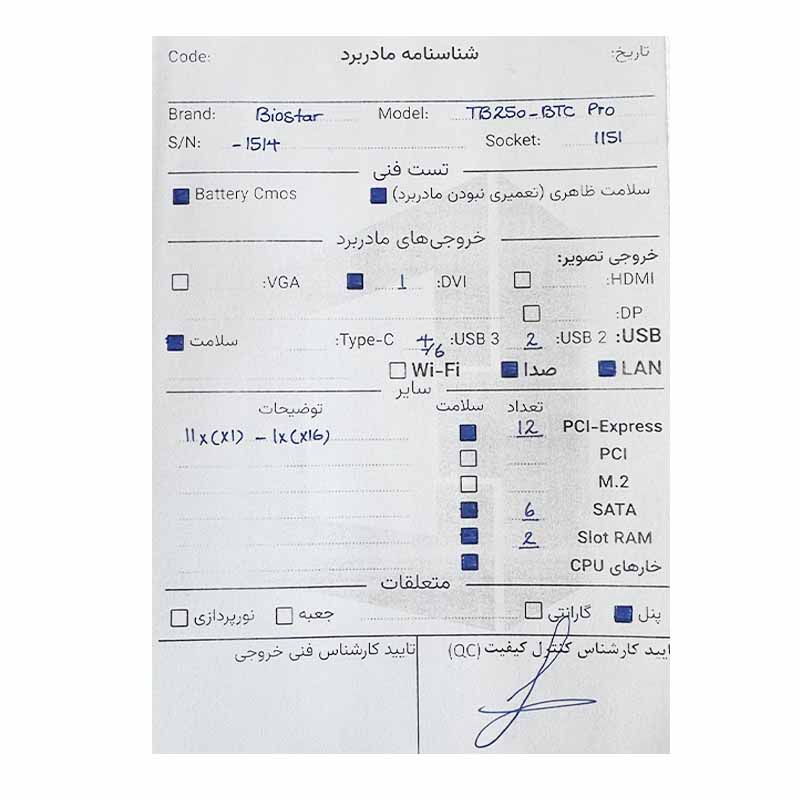 Code: شناسنامه مادربرد تاریخ:
Brand: Biostar Model: TB250-BTC Pro
S/N: -1514 Socket: 1151
تست فنی
سلامت ظاهری (تعمیری نبودن مادربرد) Battery Cmos
خروجی‌های مادربرد
خروجی تصویر:
HDMI: DVI: 1 VGA:
DP:
USB: USB 2: 2 USB 3: 4/6 Type-C: سلامت
LAN صدا Wi-Fi
سایر
تعداد سلامت توضیحات
PCI-Express 12 11x(x1) - 1x(x16)
PCI
M.2
SATA 6
Slot RAM 2
خارهای CPU
متعلقات
پنل گارانتی جعبه نورپردازی
ایید کارشناس کنترل کیفیت (QC) تایید کارشناس فنی خروجی